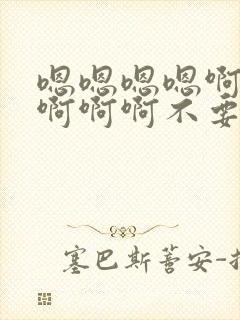 嗯嗯嗯嗯啊
啊啊啊不要
塞巴斯蒈安-